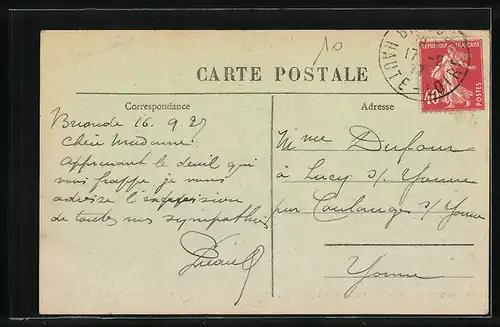 10
BRIOUDE
17
HAUTE-LOIRE
REPUBLIQUE FRANÇAISE
40
POSTES
CARTE POSTALE
Correspondance
Adresse
Brioude 16.9.27
Chère Madame
Apprenant le deuil qui
vous frappe je vous
adresse l'expression
de toutes mes sympathies
Mme Dufour
à Lucy s/ Yonne
par Coulanges s/ Yonne
Yonne